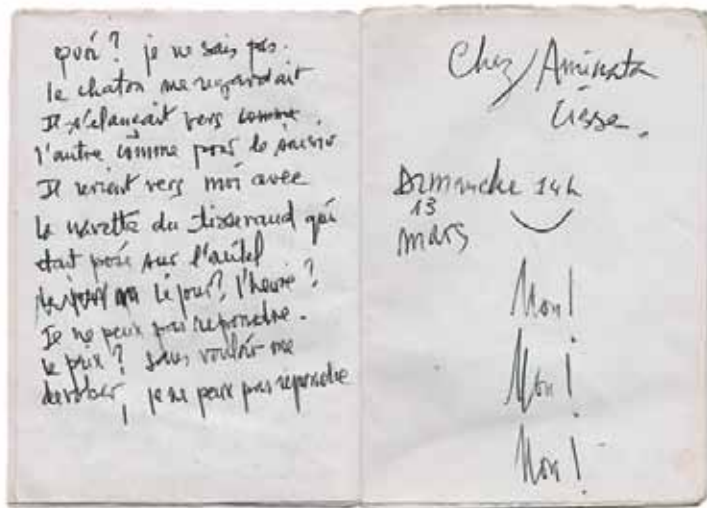 quoi ? je ne sais pas.
le chaton me regardait
Il s'elançait vers comme
l'autre comme pour le saisir
Il revient vers moi avec
la navette du tisserand qui
était posée sur l'autel
le jour ? l'heure ?
Je ne peux pas repondre.
le prix ? sans vouloir me
derober, je ne peux pas répondre
Chez Aminata
Cisse.
Dimanche 14h
13
mars
Non !
Non !
Non !